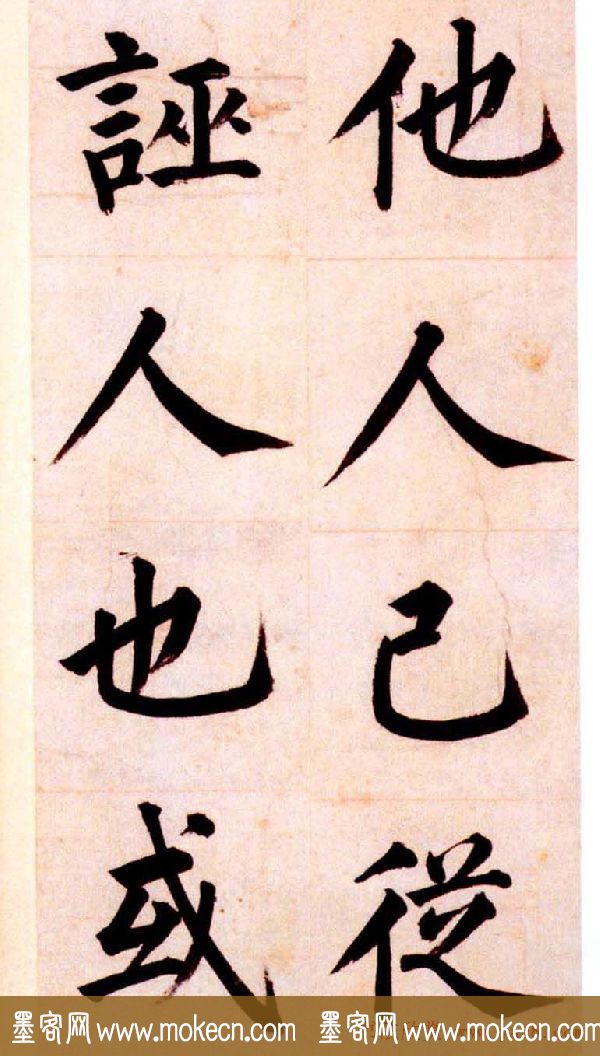 他人己從
誣人也或
墨客网 www.mokecn.com 墨客网 www.mokecn.com